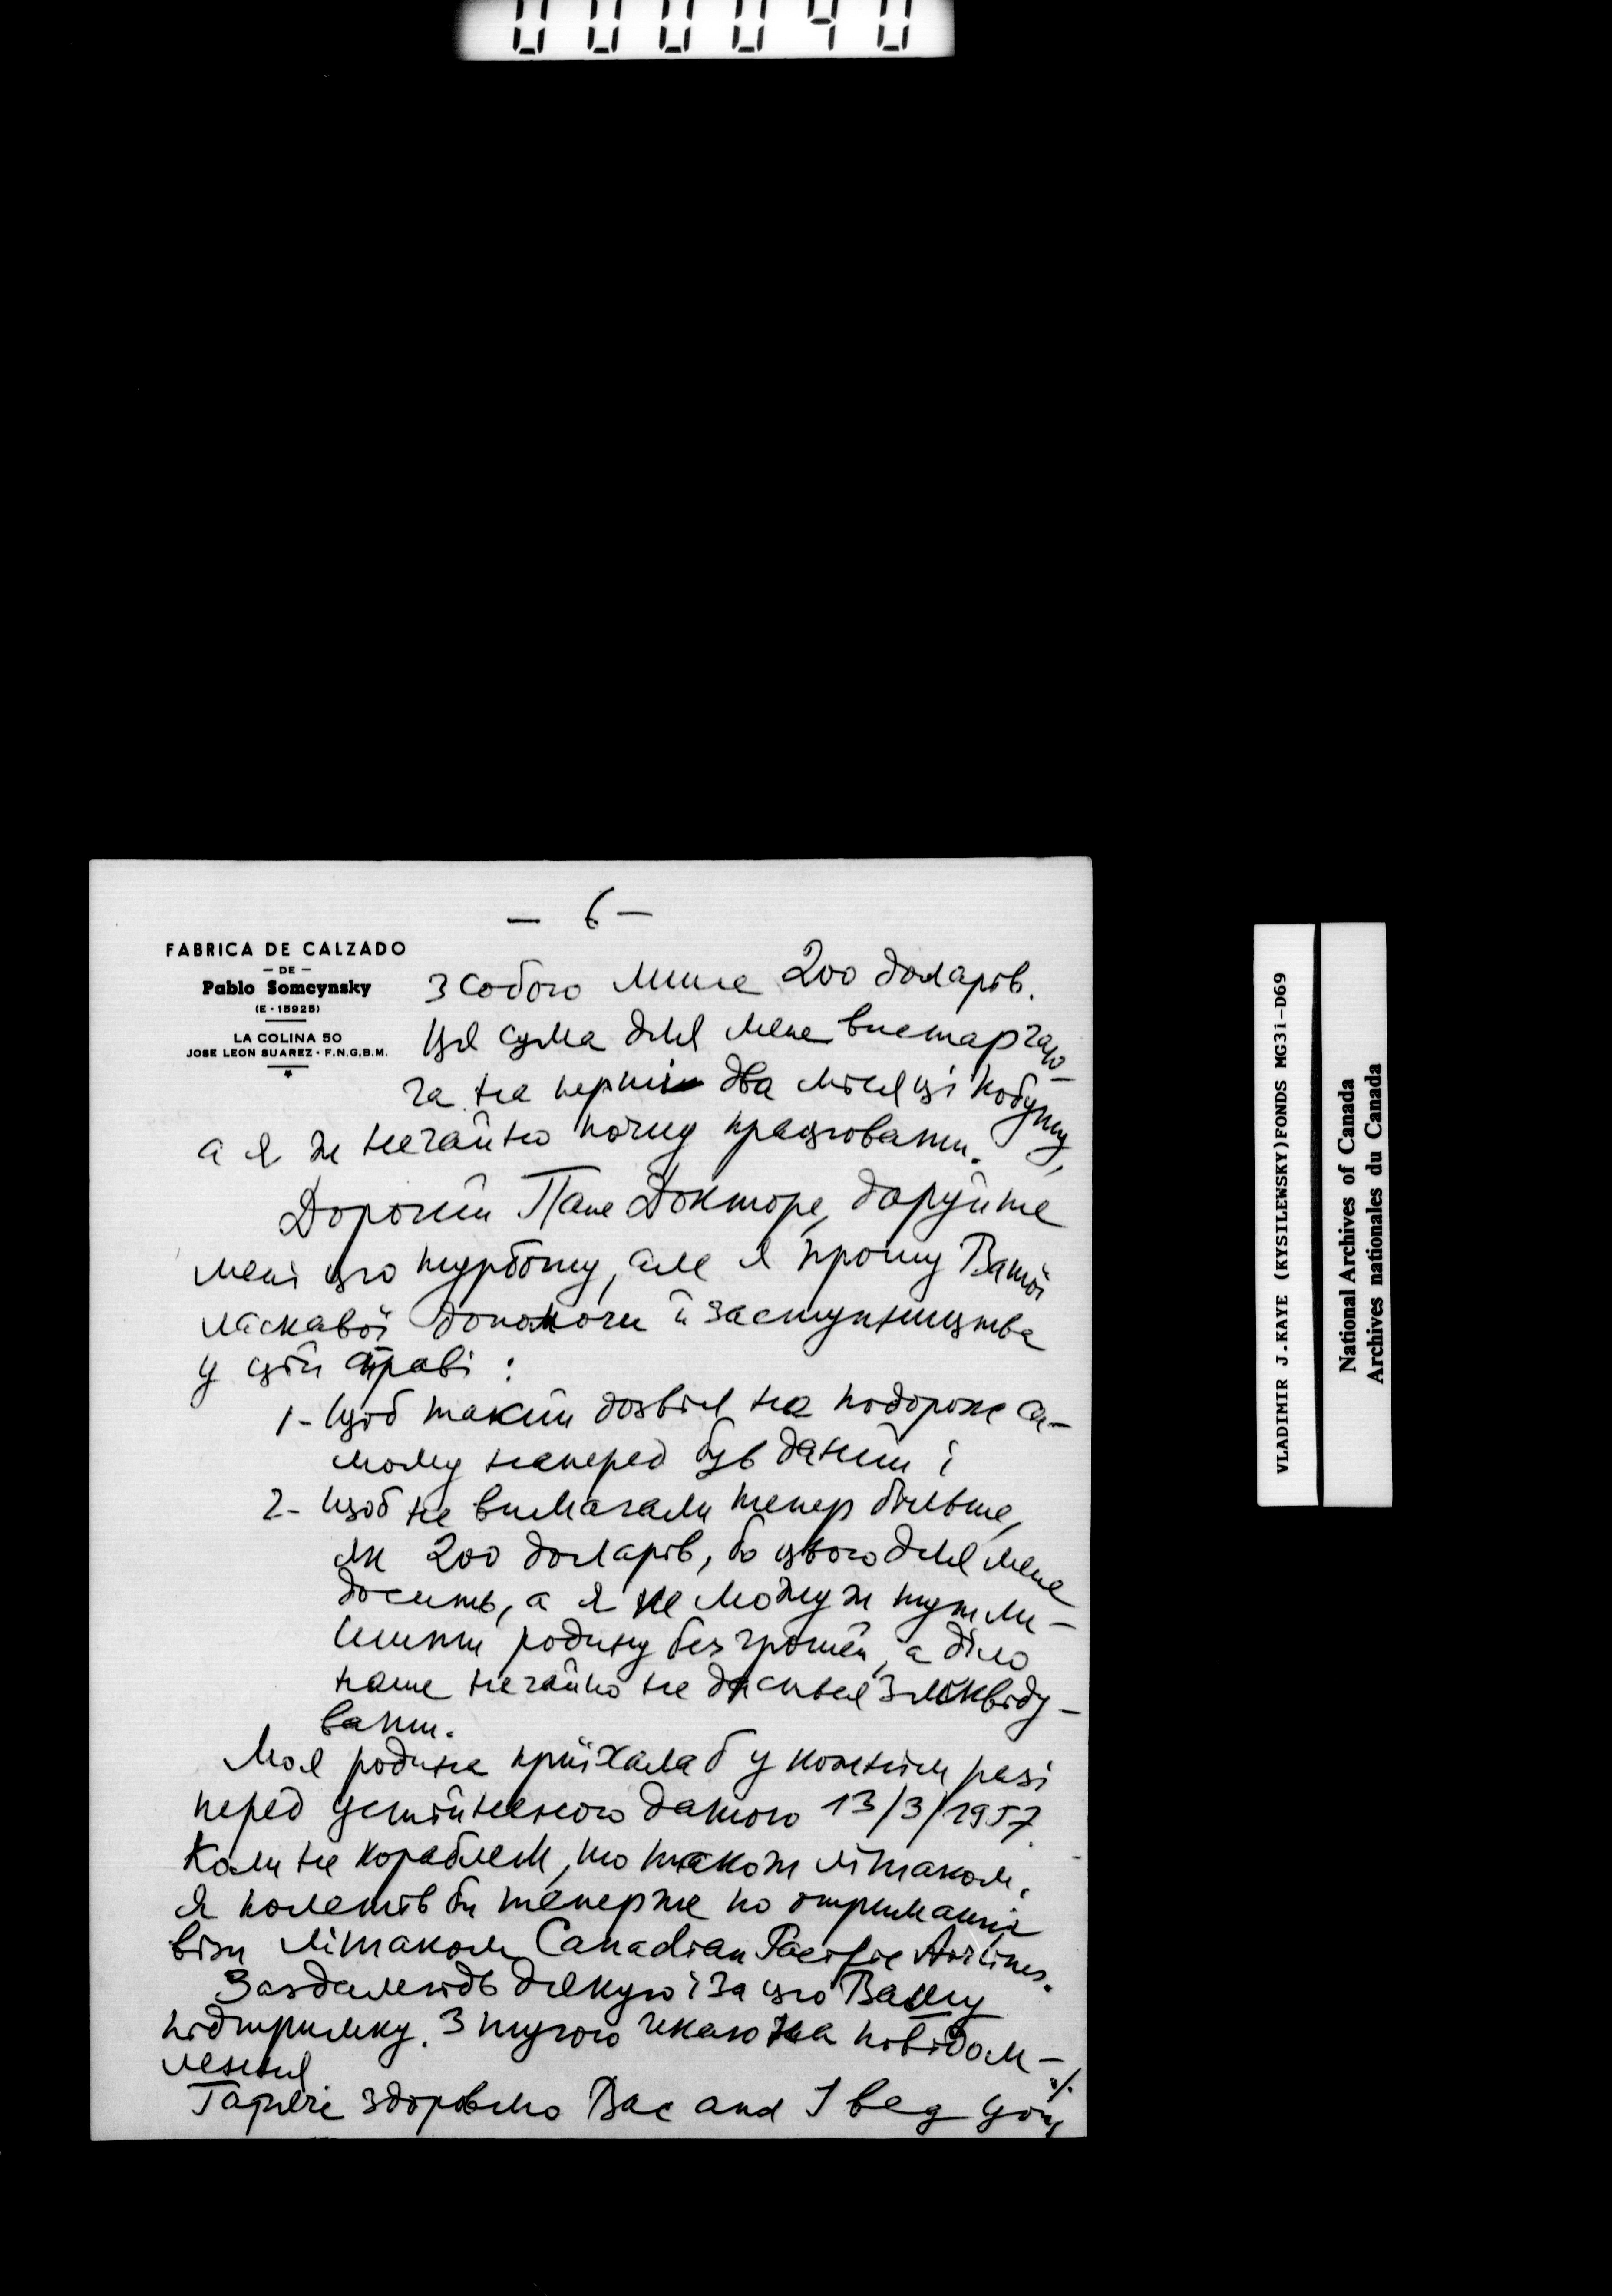 000040
— 6 —
FABRICA DE CALZADO
— DE —
Pablo Somcynsky
(E - 15925)
LA COLINA 50
JOSE LEON SUAREZ - F.N.G.B.M.
з собою лише 200 долярів.
Ця сума для мене вистарчаю-
ча на перші два місяці побуту,
а я ж негайно почну працювати.
Дорогий Пане Докторе, даруйте
мені цю турботу, але я прошу Вашої
ласкавої допомоги й заступництва
у цій справі:
1- Щоб такий дозвіл на подорож са-
мому наперед був даний і
2- щоб не вимагали тепер більше,
як 200 долярів, бо цього для мене
досить, а я не можу ж тут ли-
шити родину без грошей, а діло
наше негайно не дасться зліквіду-
вати.
Моя родина приїхала б у кожнім разі
перед устійненою датою 13/3/1957.
Коли не кораблем, то також літаком.
Я полетів би теперже по отриманні
візи літаком Canadian Pacific Airlines.
Заздалегідь дякую і за цю Вашу
підтримку. З тугою чекаю на повідом-
лення ./.
Гаряче здоровлю Вас and I beg you
VLADIMIR J.KAYE (KYSILEWSKY)FONDS MG31-D69
National Archives of Canada
Archives nationales du Canada